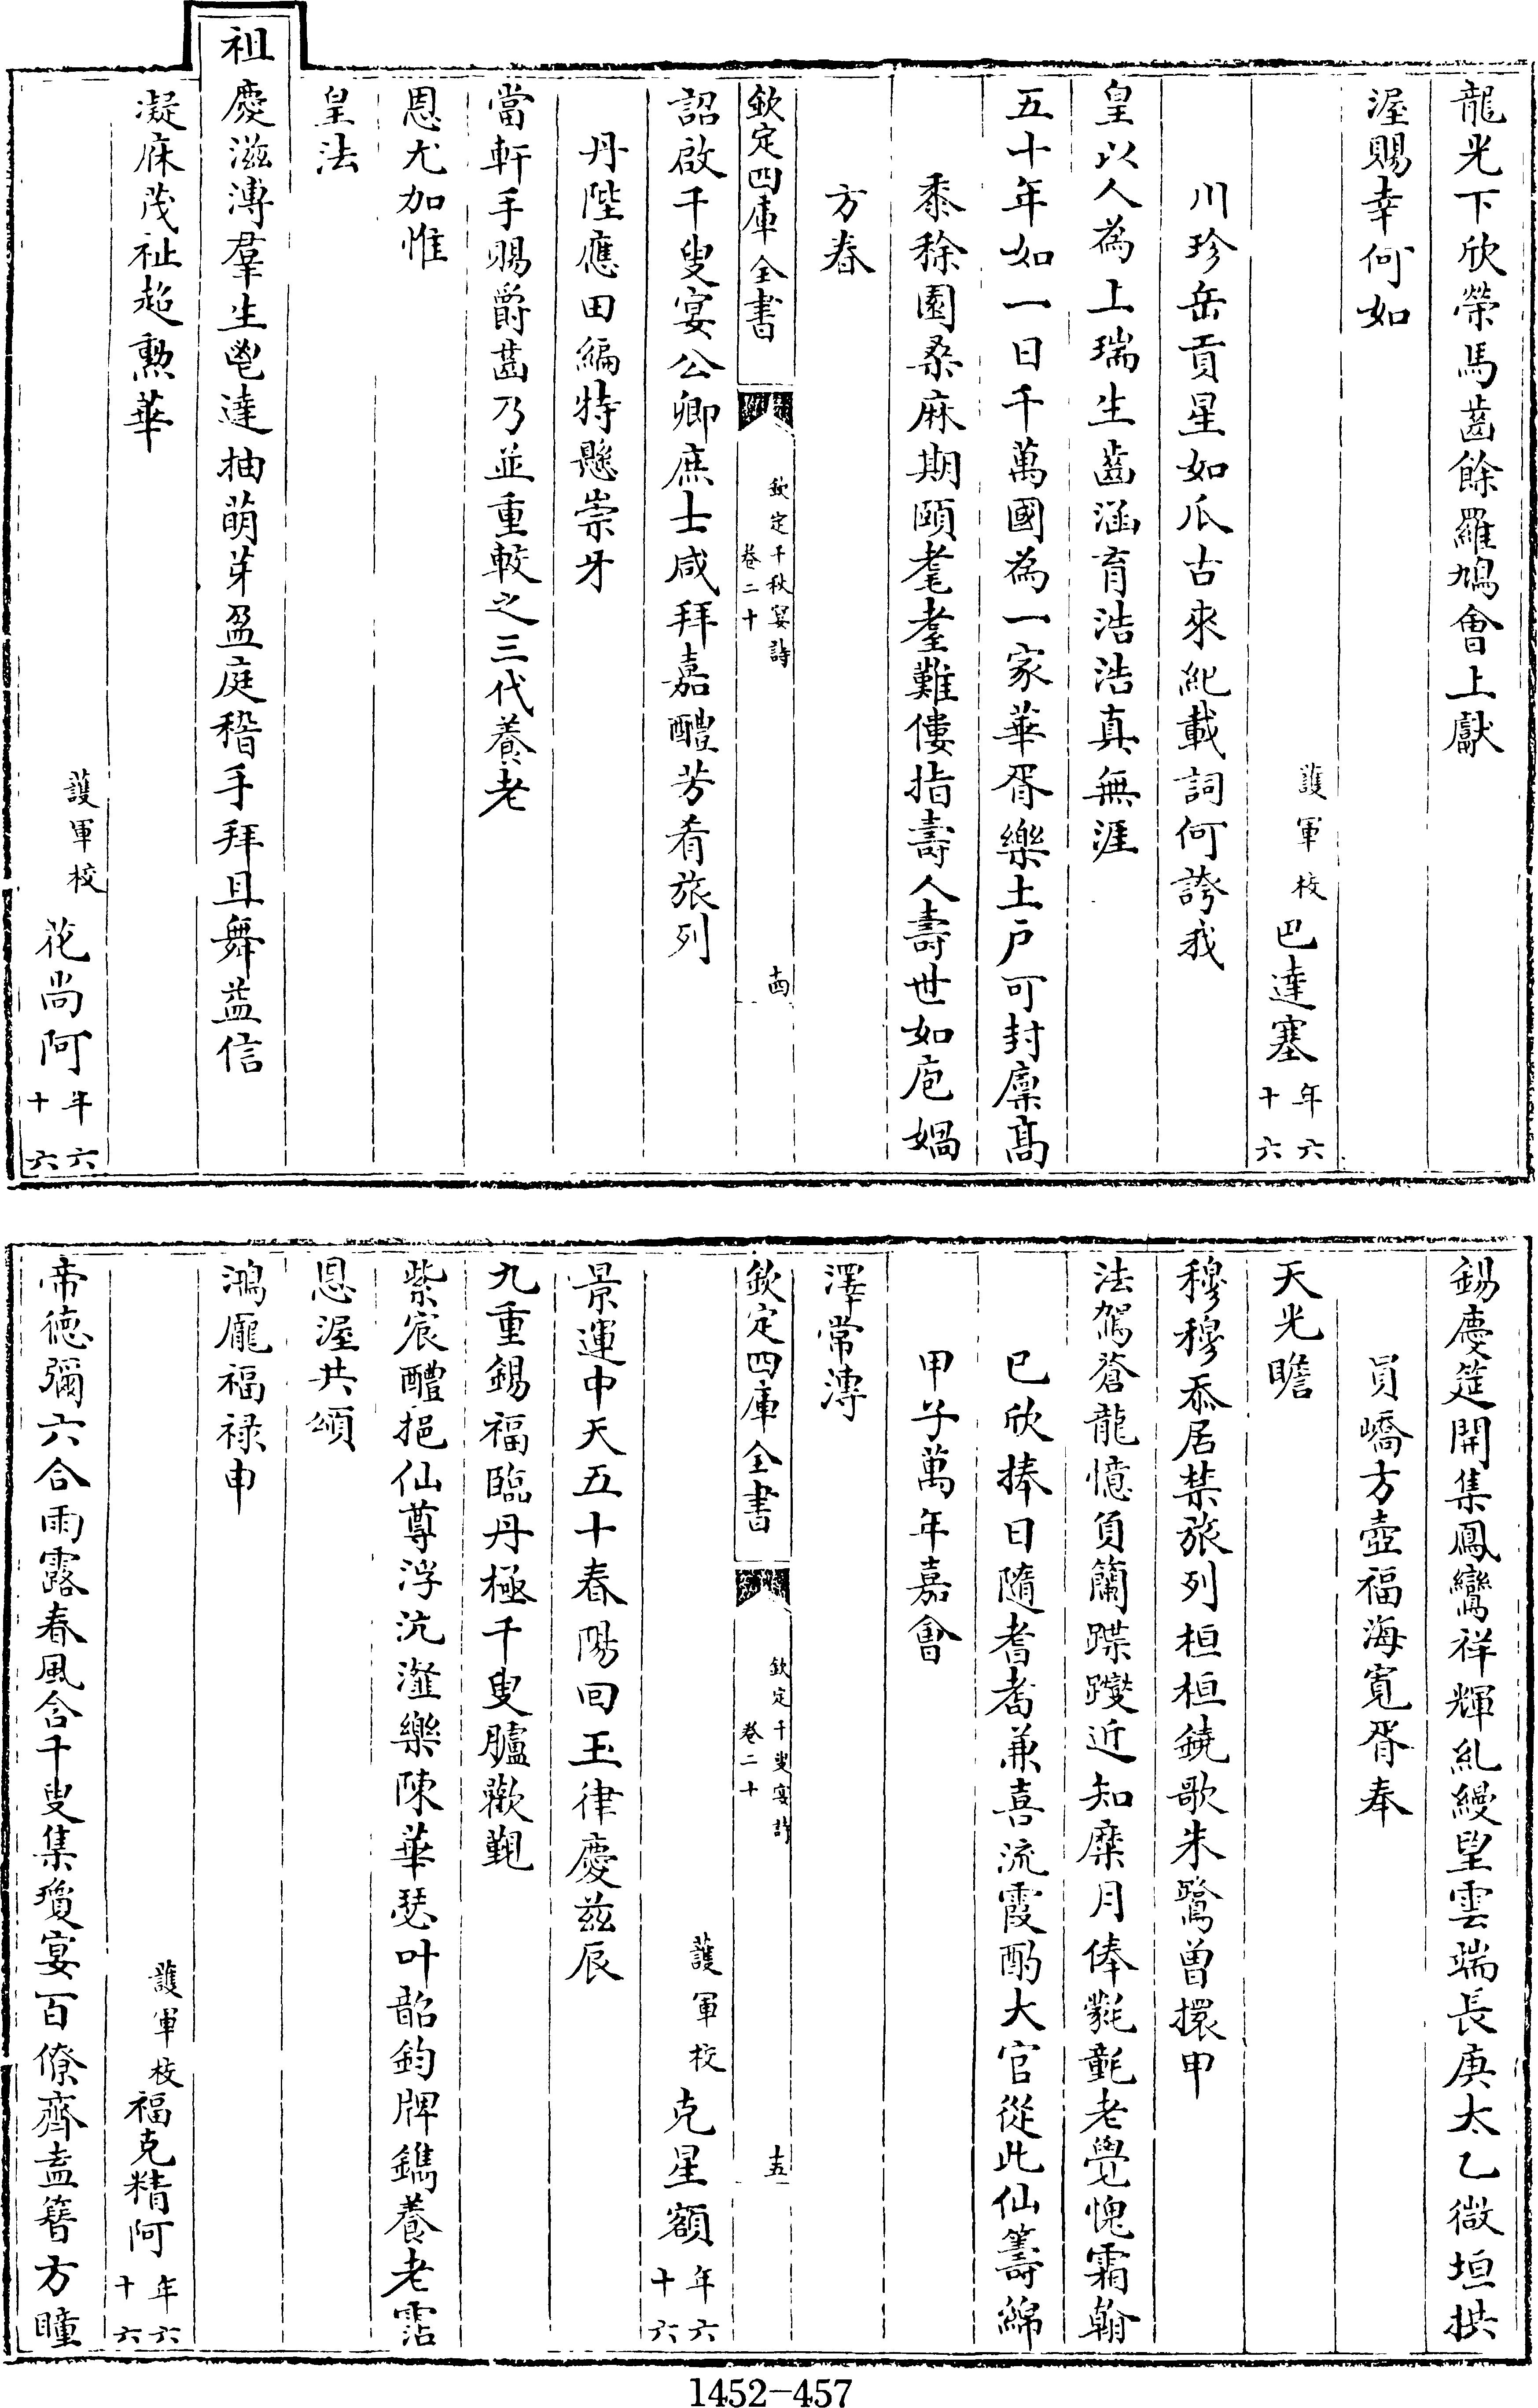 龍光下欣榮馬齒餘羅鳩會上獻
渥賜幸何如
護軍校巴達塞年六十六
川珍岳貢星如爪古來紀載詞何誇我
皇以人為上瑞生齒涵育浩浩真無涯
五十年如一日千萬國為一家華胥樂土户可封廩高
黍稌園桑麻期頤耄耋難僂指壽人壽世如庖媧
方春
欽定四庫全書
欽定千秋宴詩
卷二十
十四
詔啟千叟宴公卿庶士咸拜嘉醴芳肴旅列
丹陛應田編特懸崇牙
當軒手賜爵齒乃並重較之三代養老
恩尤加惟
皇法
祖慶滋溥羣生鬯達抽萌芽盈庭稽手拜且舞益信
凝庥茂祉超勲華
護軍校花尚阿年六十六
錫慶筵開集鳳鸞祥輝糺縵望雲端長庚太乙微垣拱
員嶠方壺福海寬胥奉
天光瞻
穆穆忝居禁旅列桓桓鐃歌朱鷺曾擐甲
法駕蒼龍憶負蘭蹀躞近知糜月俸氋氃老覺愧霜翰
已欣捧日隨耆耇兼喜流霞酌大官從此仙籌綿
甲子萬年嘉會
澤常溥
欽定四庫全書
欽定千叟宴詩
卷二十
十五
護軍校克星額年六十六
景運中天五十春陽回玉律慶兹辰
九重錫福臨丹極千叟臚歡覲
紫宸醴挹仙尊浮沆瀣樂陳華瑟叶韶鈞牌鐫養老霑
恩渥共頌
鴻厖福禄申
護軍校福克精阿年六十六
帝德彌六合雨露春風含千叟集瓊宴百僚齊盍簪方瞳
1452-457